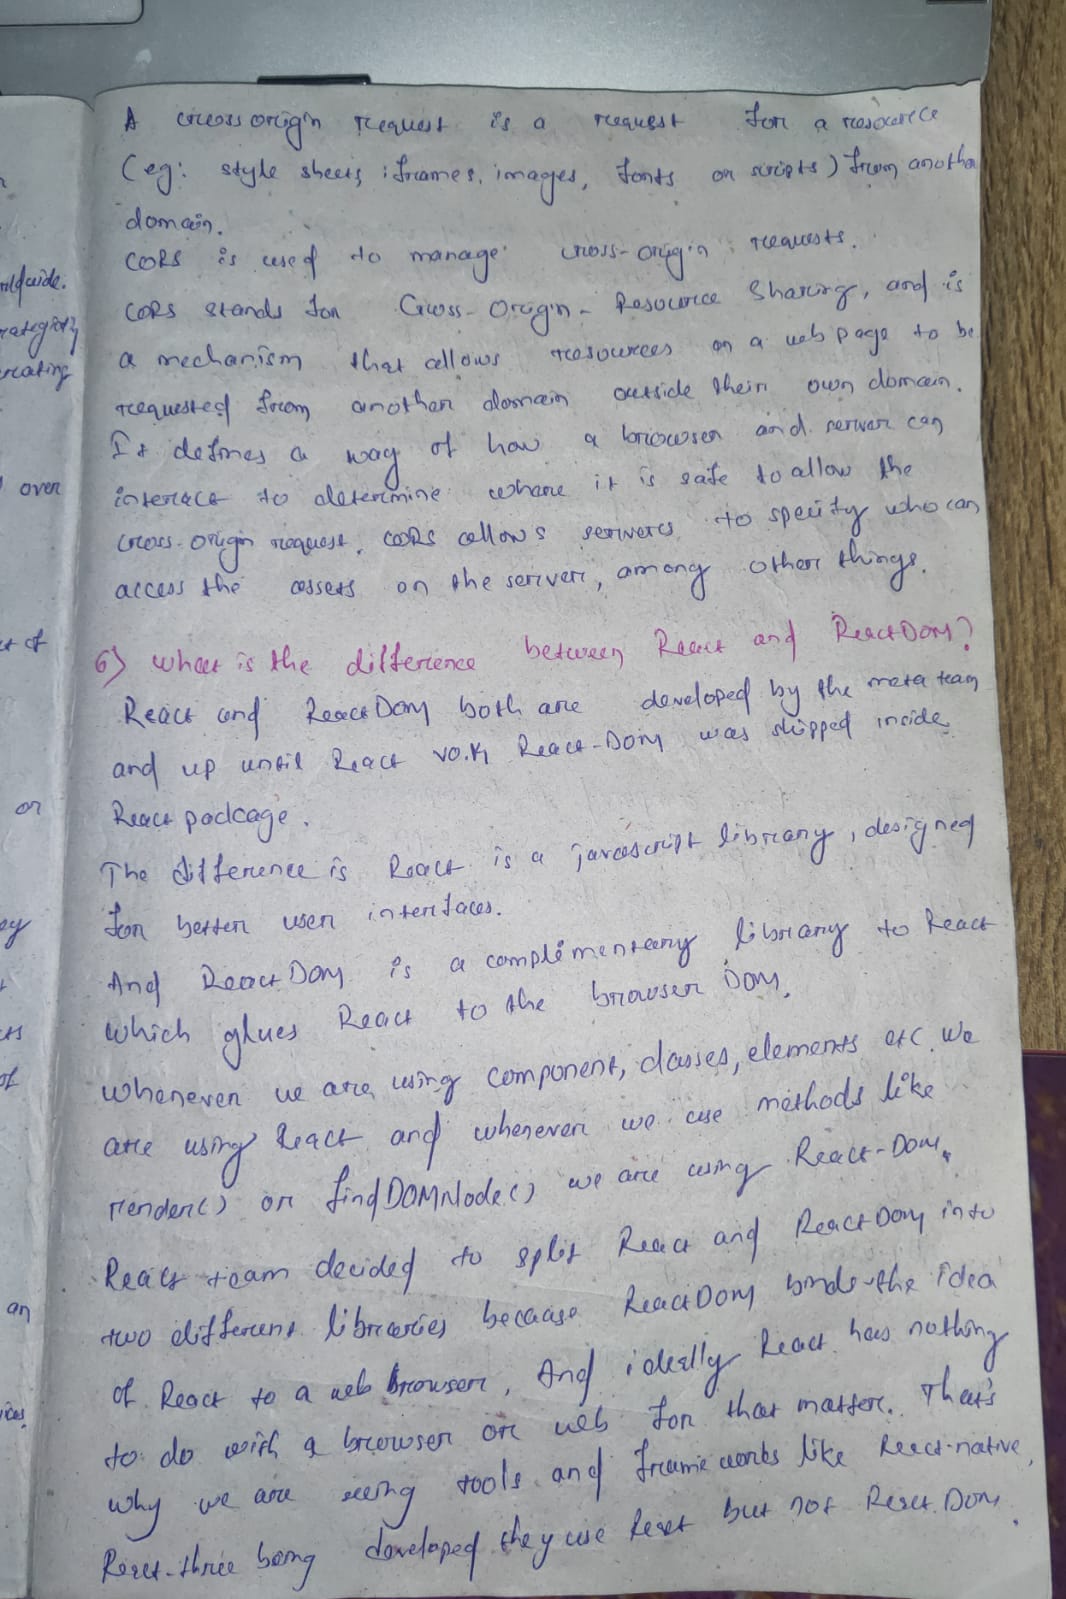 A cross origin request is a request for a resource
(eg: style sheets, iframes, images, fonts or scripts) from another
domain.
CORS is used to manage cross-origin requests.
CORS stands for Cross-Origin-Resource Sharing, and is
a mechanism that allows resources on a web page to be
requested from another domain outside their own domain.
It defines a way of how a browser and server can
interact to determine whether it is safe to allow the
cross-origin request. CORS allows servers to specify who can
access the assets on the server, among other things.
6) What is the difference between React and ReactDOM?
React and ReactDOM both are developed by the meta team
and up until React v0.14 React-Dom was shipped inside
React package.
The difference is React is a javascript library, designed
for better user interfaces.
And ReactDOM is a complementary library to React
which glues React to the browser DOM.
Whenever we are using component, classes, elements etc. We
are using React and whenever we use methods like
render() or findDOMNode() we are using React-DOM.
React team decided to split React and ReactDOM into
two different libraries because ReactDOM binds the idea
of React to a web browser. And ideally React has nothing
to do with a browser or web for that matter. That's
why we are seeing tools and frameworks like React-native,
React-three being developed they use React but not React DOM.
ildwide.
rategies
reating
over
ct of
or
ey
cts
of
an
ices